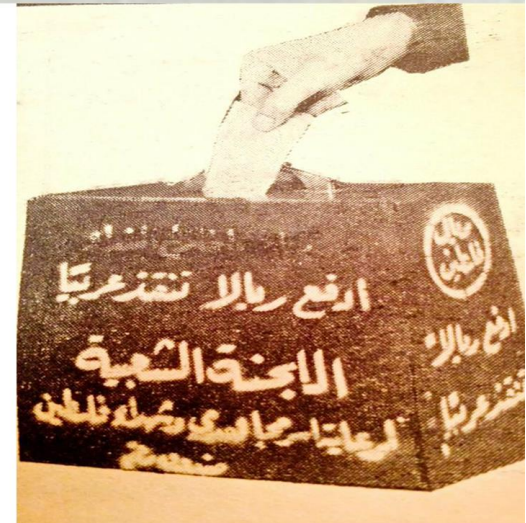 ادفع ريالا تنقذ عربيّا
اللجنة الشعبية
لرعاية اسر مجاهدي وشهداء فلسطين
ريال
فلسطين
ادفع ريالا
تنقذ عربيّا